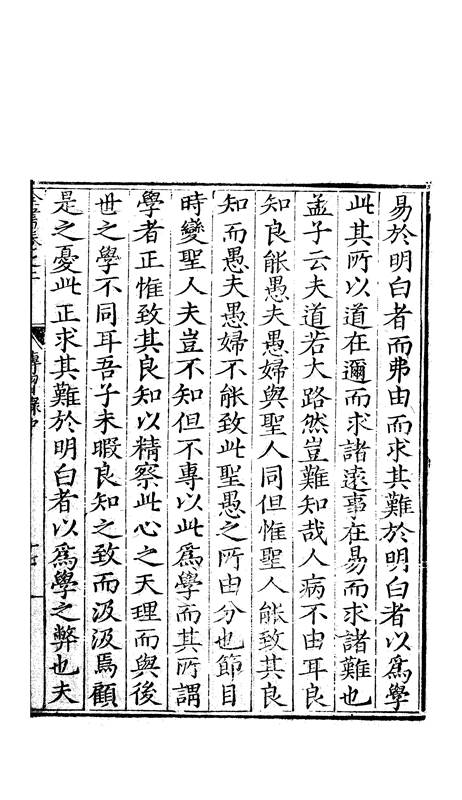 易於明白者而弗由而求其難於明白者以爲學
此其所以道在邇而求諸遠事在易而求諸難也
孟子云夫道若大路然豈難知哉人病不由耳良
知良能愚夫愚婦與聖人同但惟聖人能致其良
知而愚夫愚婦不能致此聖愚之所由分也節目
時變聖人夫豈不知但不專以此爲學而其所謂
學者正惟致其良知以精察此心之天理而與後
世之學不同耳吾子未暇良知之致而汲汲焉顧
是之憂此正求其難於明白者以爲學之弊也夫
傳習録中